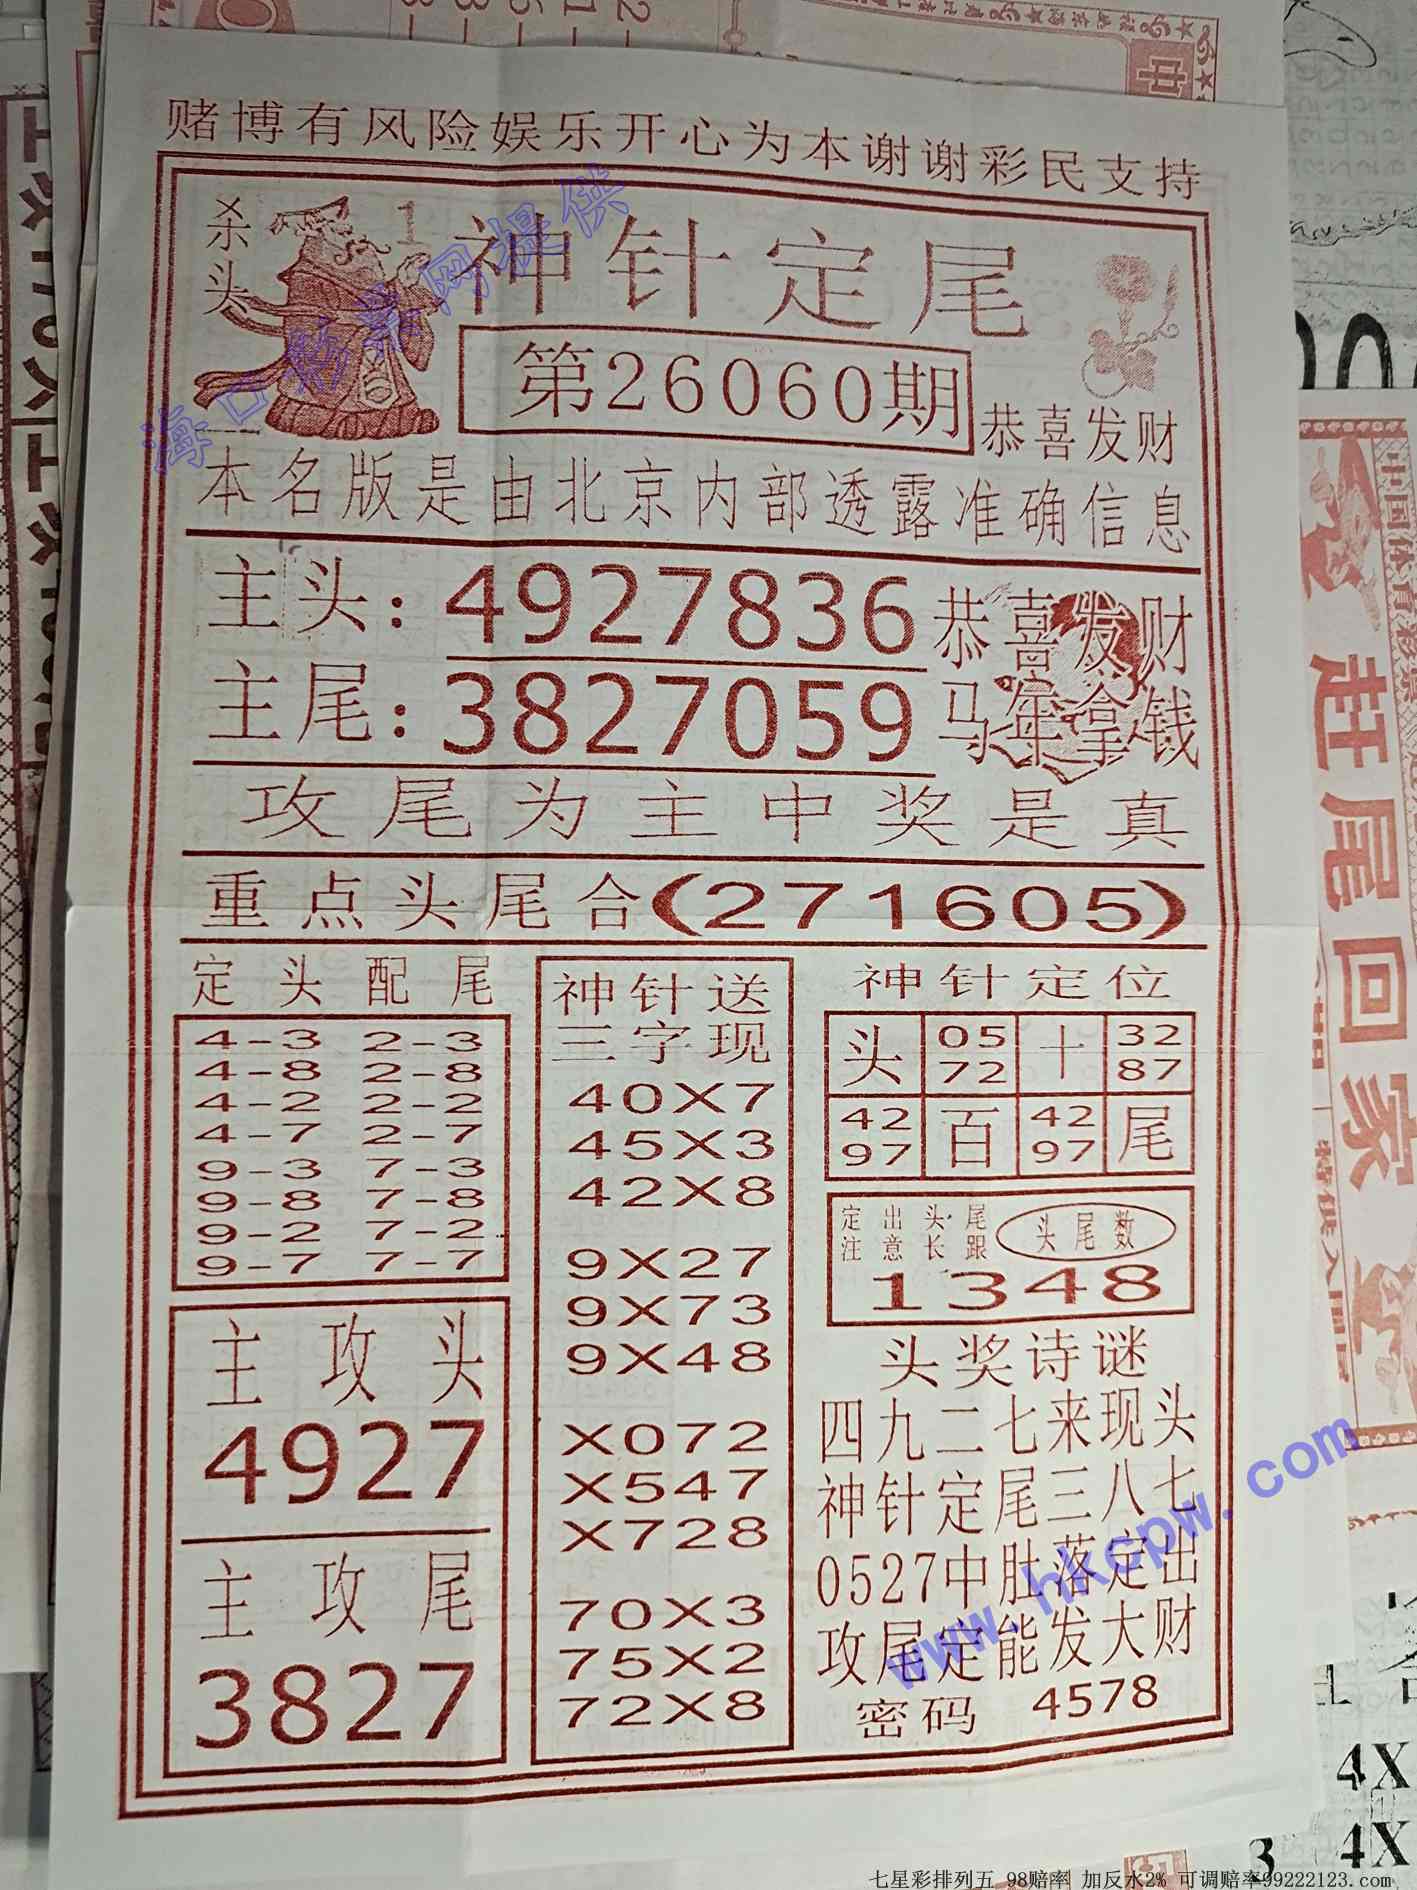 赌博有风险娱乐开心为本谢谢彩民支持
杀头
1
神针定尾
第26060期
恭喜发财
本名版是由北京内部透露准确信息
主头：4927836
恭喜发财
主尾：3827059
马年拿钱
攻尾为主中奖是真
重点头尾合(271605)
定头配尾
4-3 2-3
4-8 2-8
4-2 2-2
4-7 2-7
9-3 7-3
9-8 7-8
9-2 7-2
9-7 7-7
主攻头
4927
主攻尾
3827
神针送
三字现
40X7
45X3
42X8
9X27
9X73
9X48
X072
X547
X728
70X3
75X2
72X8
神针定位
头 05 十 32
72 87
42 百 42 尾
97 97
定出头尾
注意长跟
头尾数
1348
头奖诗谜
四九二七来现头
神针定尾三八七
0527中肚落定出
攻尾定能发大财
密码 4578
海口彩票网提供
www.hkcpw.com
中国体育彩票
赶尾回家
4X
3 4X
七星彩排列五 98赔率 加反水2% 可调赔率99222123.com